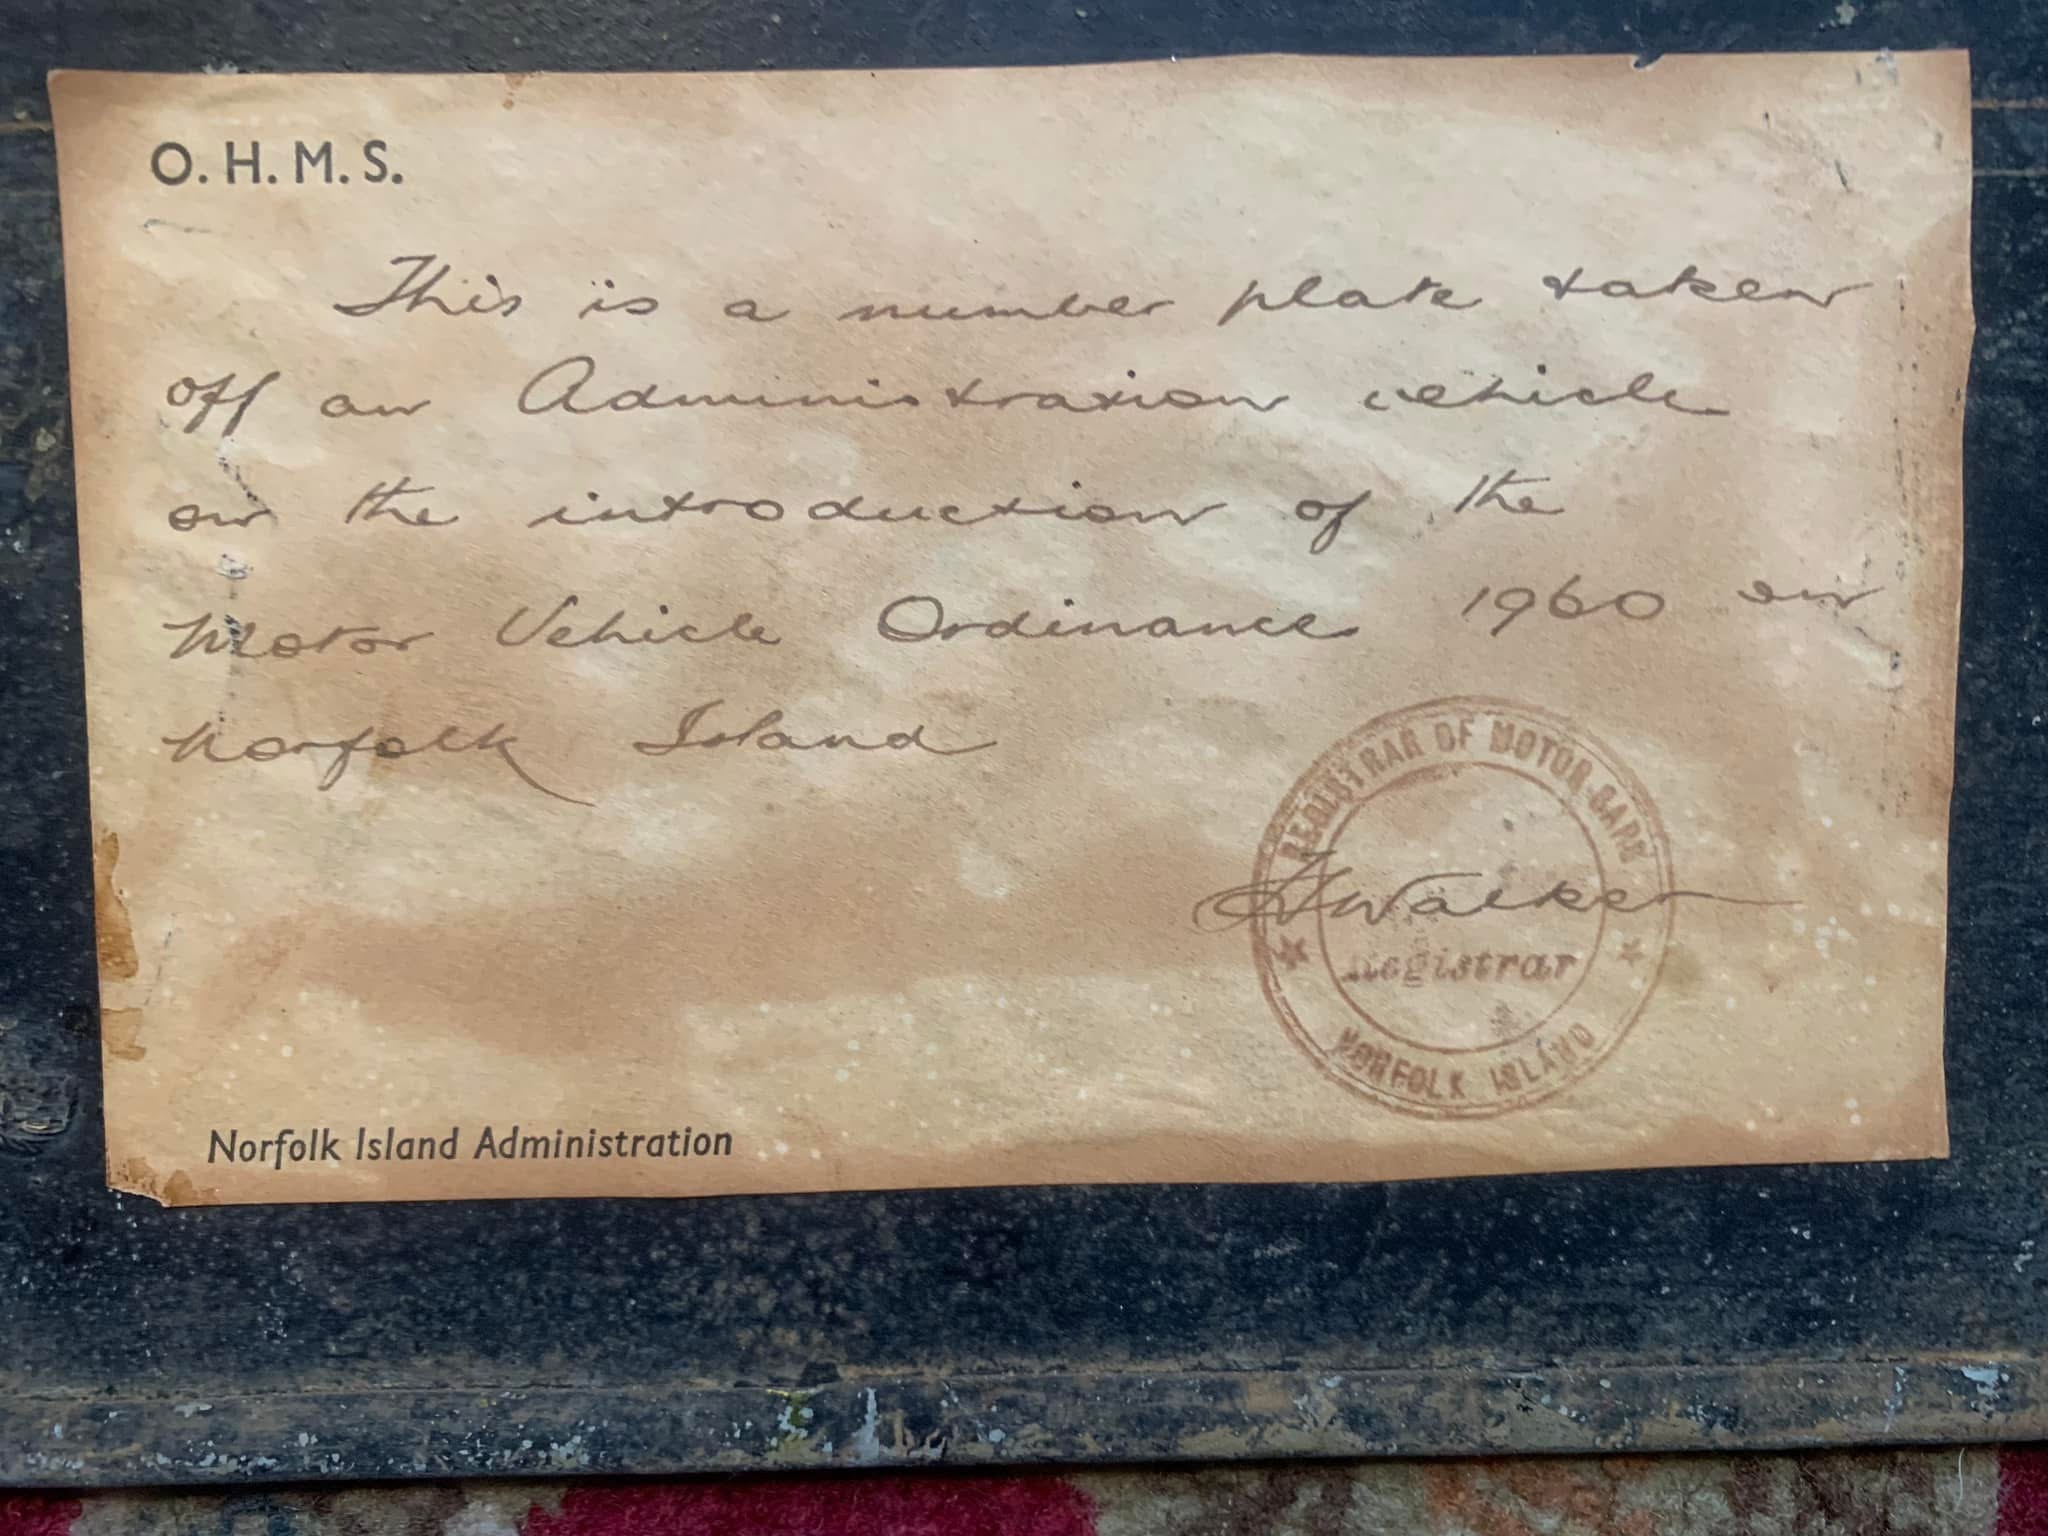 O. H. M. S.
This is a number plate taken
off an Administration vehicle
on the introduction of the
Motor Vehicle Ordinance 1960 on
Norfolk Island
REGISTRAR OF MOTOR CARS
Walker
Registrar
NORFOLK ISLAND
Norfolk Island Administration